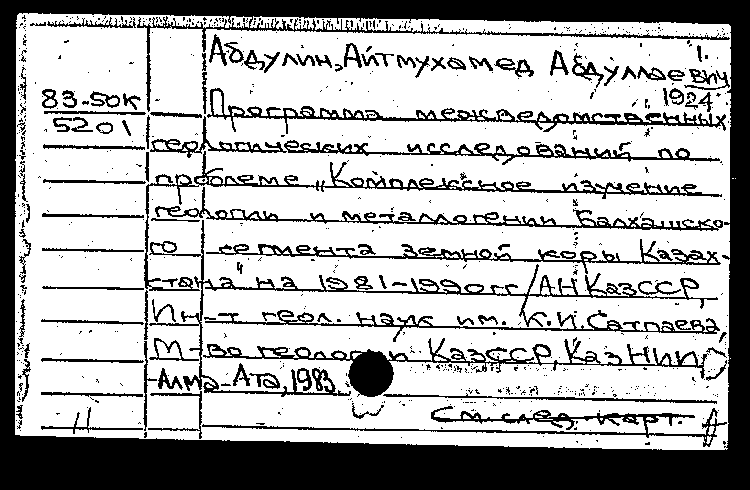 1.
Абдулин, Айтмухамед Абдуллаевич
1924
83-50К
5201
Программа межведомственных
геологических исследований по
проблеме „Комплексное изучение
геологии и металлогении Балхашско-
го сегмента земной коры Казах-
стана" на 1981-1990 гг / АН КазССР,
Ин-т геол. наук им. К.И.Сатпаева,
М-во геологии КазССР, КазНИИ
Алма-Ата, 1983
См. след. карт.
11